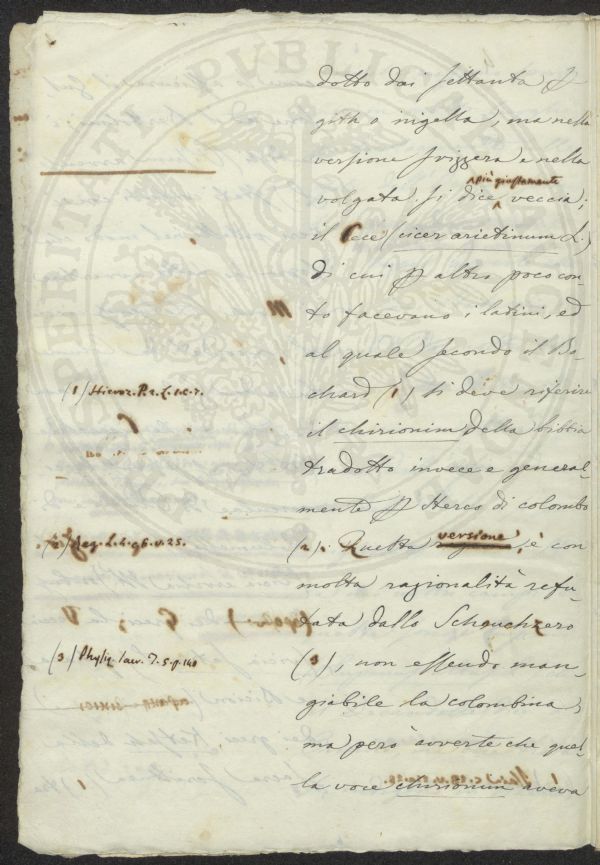 dotto dai settanta p
gith o nigella, ma nella
versione svizzera e nella
più giustamente
volgata si dice veccia;
il Cece (cicer arietinum L.)
di cui p altro poco con-
to facevano i latini, ed
al quale secondo il Bo-
chard (1) si deve riferire
il chirionim della bibbia
tradotto invece e general-
mente p sterco di colombo
(2). Questa versione, è con
molta ragionalità refu-
tata dallo Scheuchzero
(3), non essendo man-
giabile la colombina,
ma però avverte che quel-
la voce chirionim aveva
(1) Hieroz. P. 2. L. 1. C. 7.
(2) Reg. L. 4. c. 6. v. 25.
(3) Physiq. sacr. T. 5. p. 140